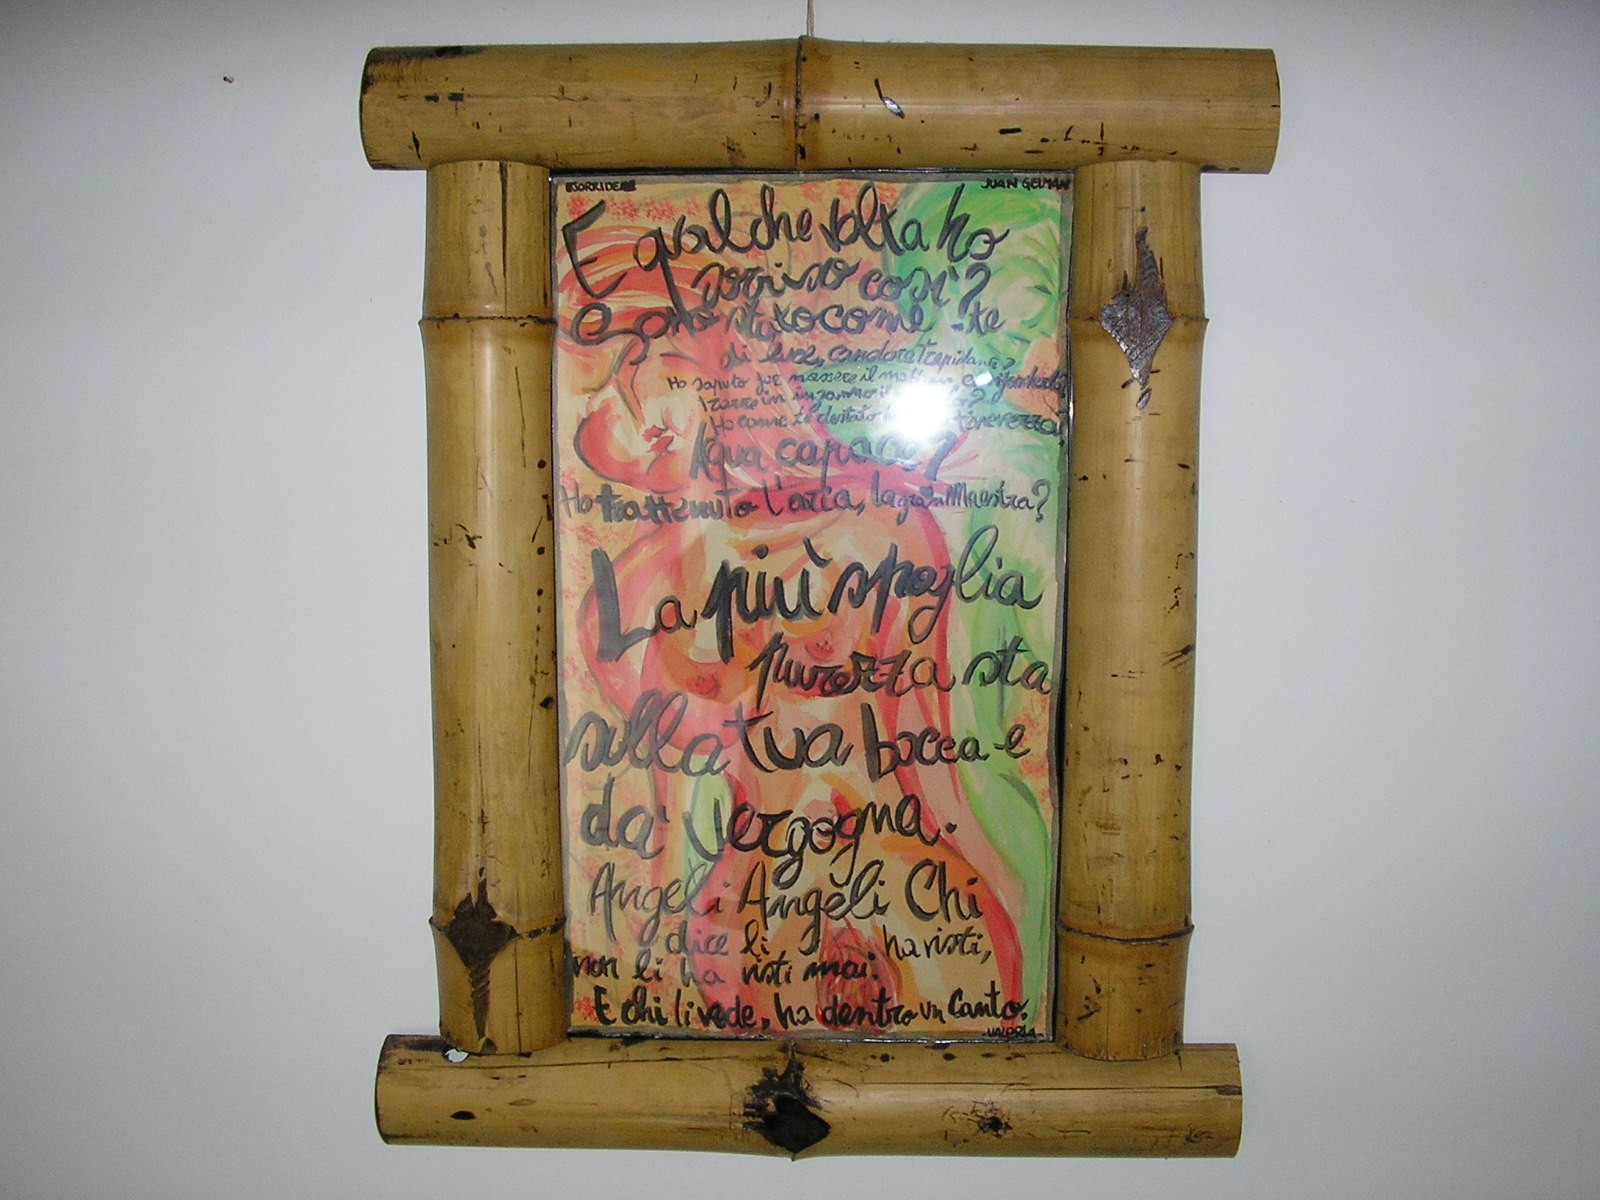 SORRIDERE
JUAN GELMAN
E qualche volta ho
sorriso così?
Sono stato come te
di luce, candore trepidante?
Ho saputo far nascere il
trarre in inganno il
Ho come te destato tenerezza?
Aqua capace?
Ho trattenuto l'orca, la gran Maestra?
La più spoglia
purezza sta
sulla tua bocca e
da' vergogna.
Angeli Angeli Chi
dice li ha visti,
non li ha visti mai.
E chi li vede, ha dentro un Canto.
-VALERIA-